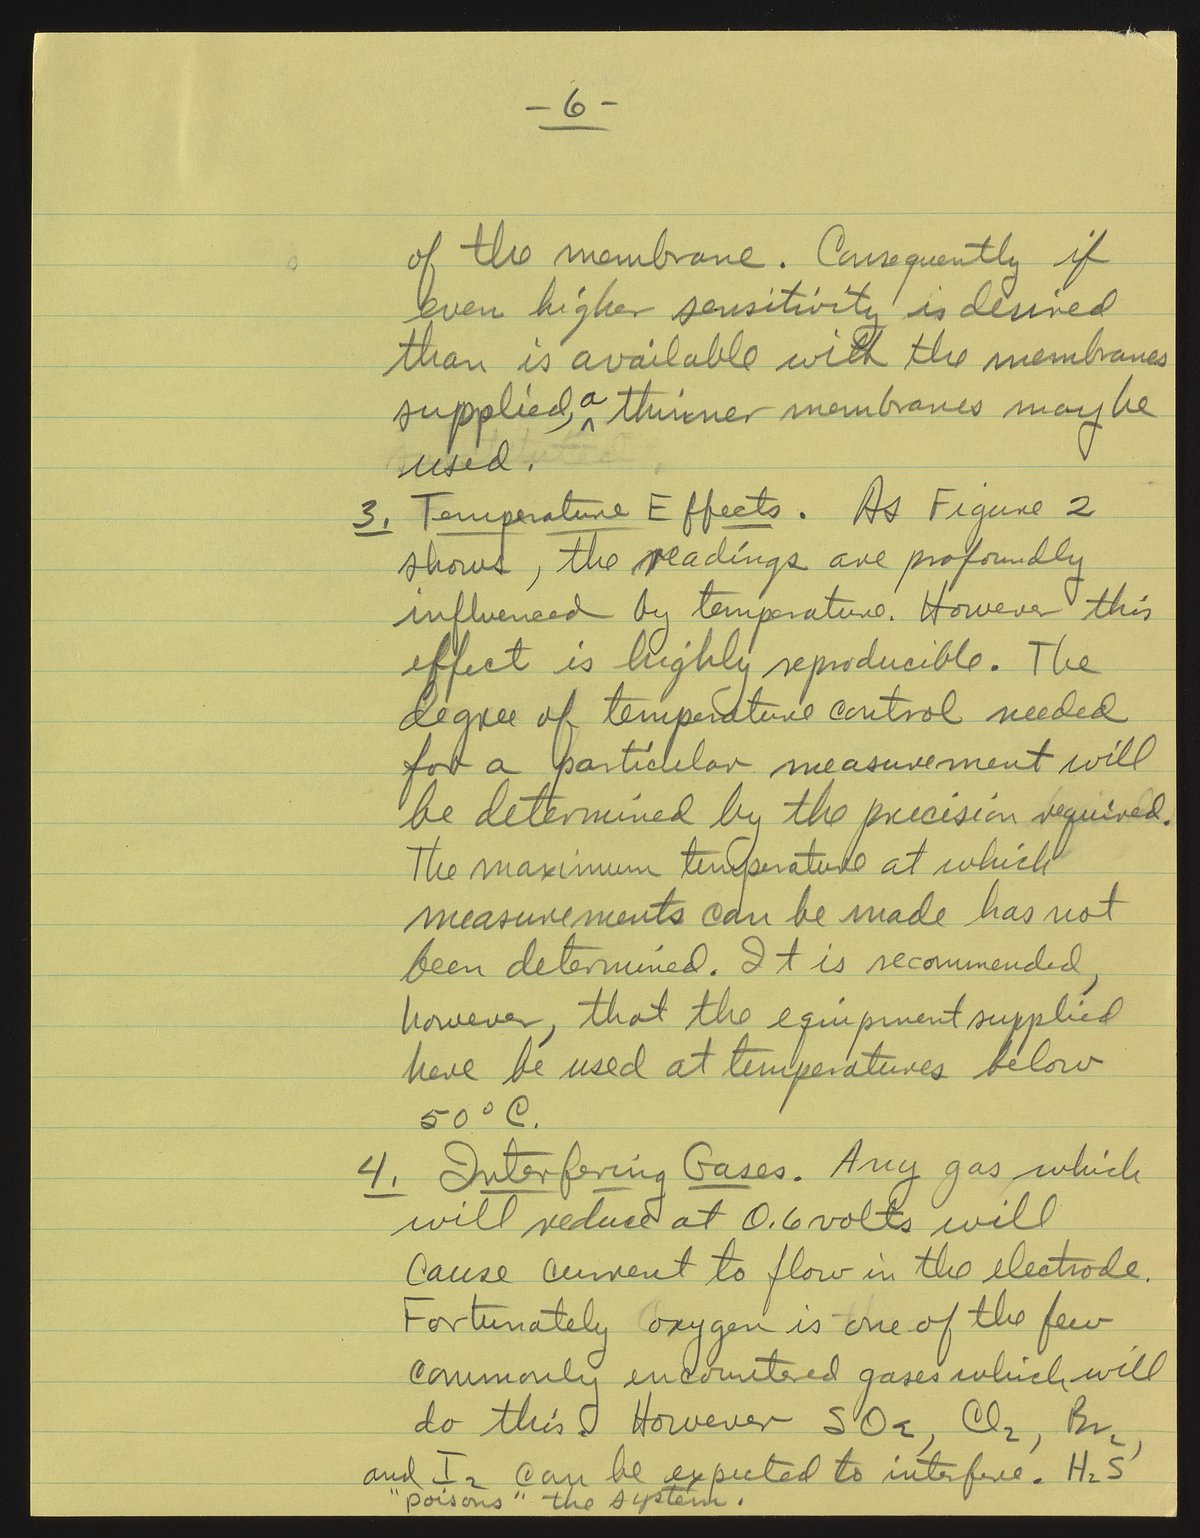 - 6 -
of the membrane. Consequently if
even higher sensitivity is desired
than is available with the membranes
supplied, a thinner membranes may be
used.
3. Temperature Effects. As Figure 2
shows, the readings are profoundly
influenced by temperature. However this
effect is highly reproducible. The
degree of temperature control needed
for a particular measurement will
be determined by the precision required.
The maximum temperature at which
measurements can be made has not
been determined. It is recommended,
however, that the equipment supplied
here be used at temperatures below
50° C.
4. Interfering Gases. Any gas which
will reduce at 0.6 volts will
cause current to flow in the electrode.
Fortunately oxygen is one of the few
commonly encountered gases which will
do this. However SO₂, Cl₂, Br₂,
and I₂ can be expected to interfere. H₂S
"poisons" the system.